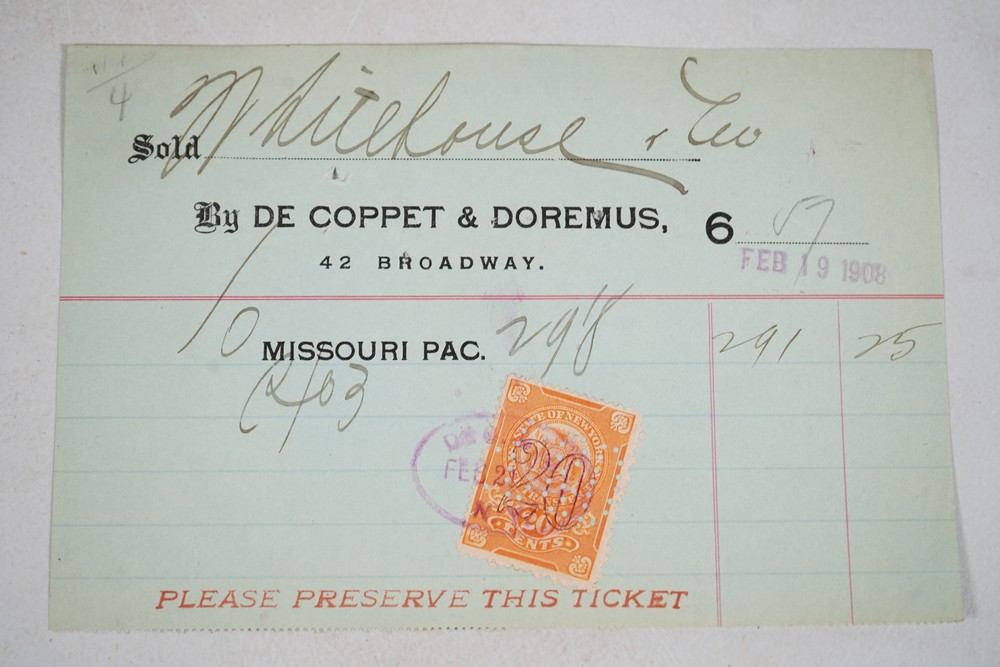 4
Sold Whitehouse & Co
By DE COPPET & DOREMUS, 6
42 BROADWAY.
FEB 19 1908
10 MISSOURI PAC. 291 25
403
STATE OF NEW YORK
TRANSFER
20
CENTS
FEB
PLEASE PRESERVE THIS TICKET